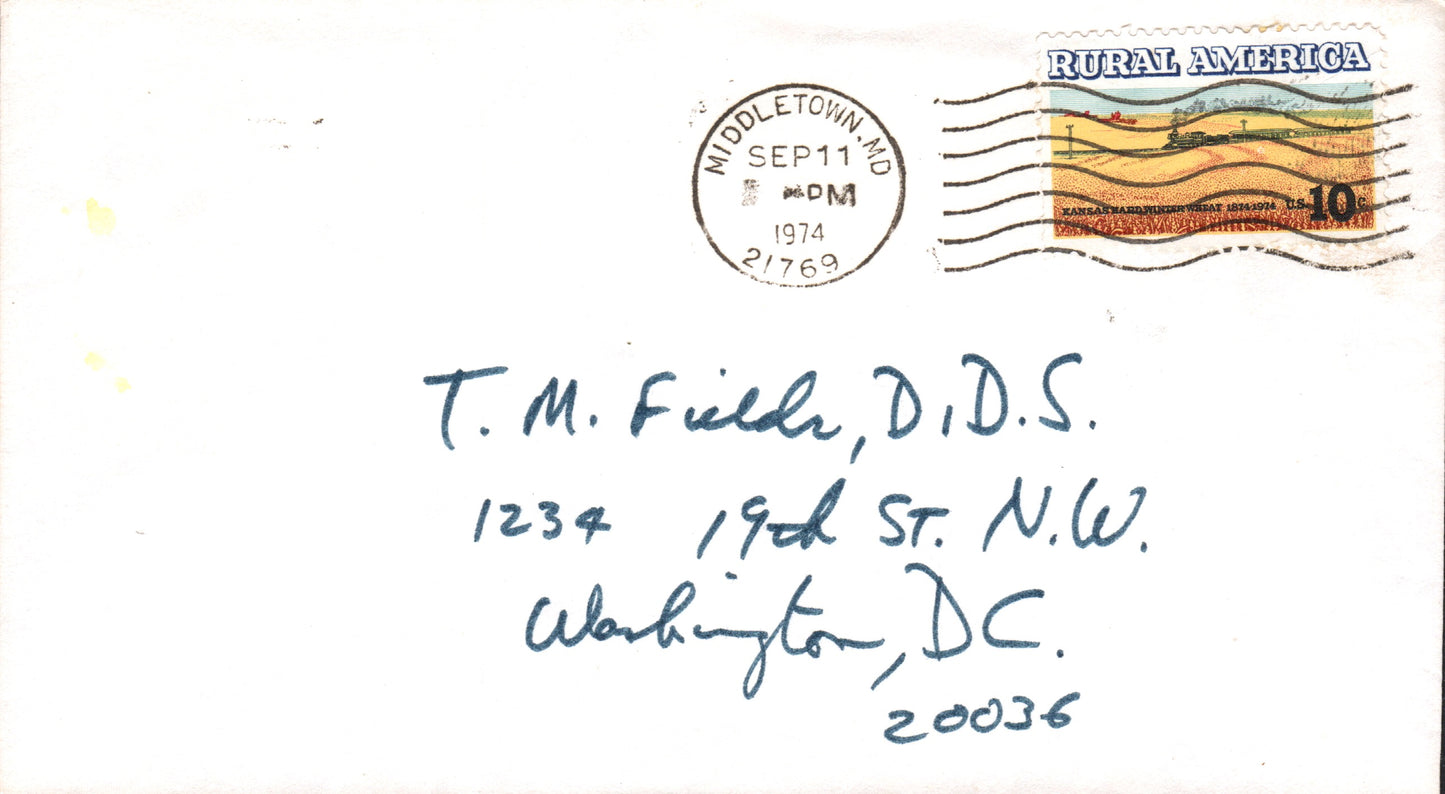 RURAL AMERICA
KANSAS HARD WINTER WHEAT 1874-1974 U.S. 10c
MIDDLETOWN, MD
SEP 11
PM
1974
21769
T. M. Fields, D.D.S.
1234 19th St. N.W.
Washington, DC.
20036